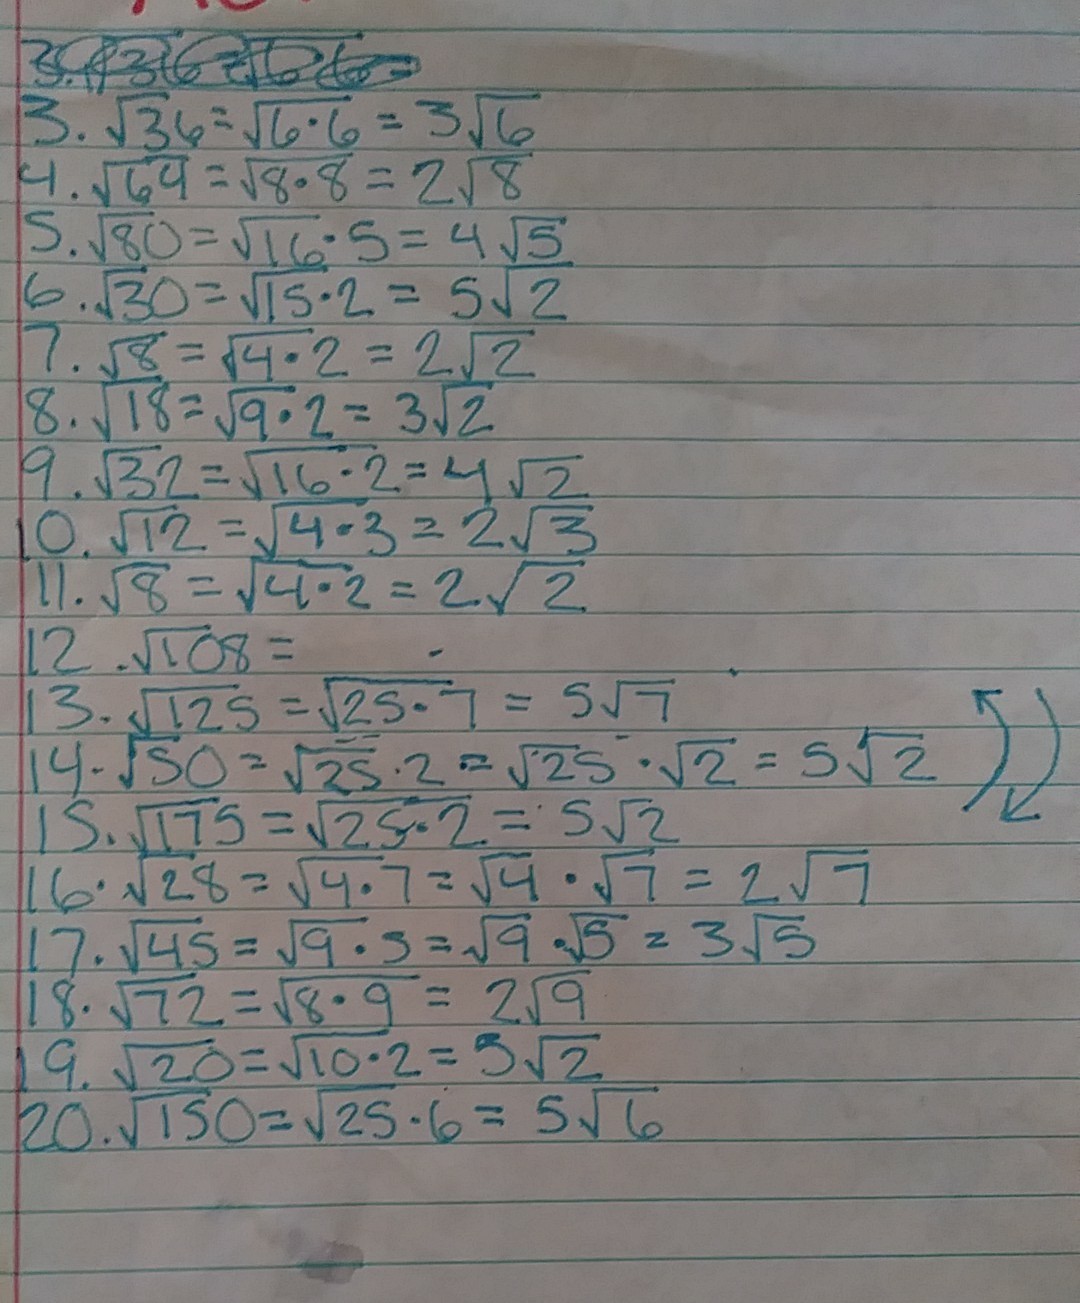 3. √36 = √6·6 = 3√6
4. √64 = √8·8 = 2√8
5. √80 = √16·5 = 4√5
6. √30 = √15·2 = 5√2
7. √8 = √4·2 = 2√2
8. √18 = √9·2 = 3√2
9. √32 = √16·2 = 4√2
10. √12 = √4·3 = 2√3
11. √8 = √4·2 = 2√2
12. √108 =
13. √125 = √25·7 = 5√7
14. √50 = √25·2 = √25·√2 = 5√2
15. √175 = √25·2 = 5√2
16. √28 = √4·7 = √4·√7 = 2√7
17. √45 = √9·5 = √9·√5 = 3√5
18. √72 = √8·9 = 2√9
19. √20 = √10·2 = 5√2
20. √150 = √25·6 = 5√6